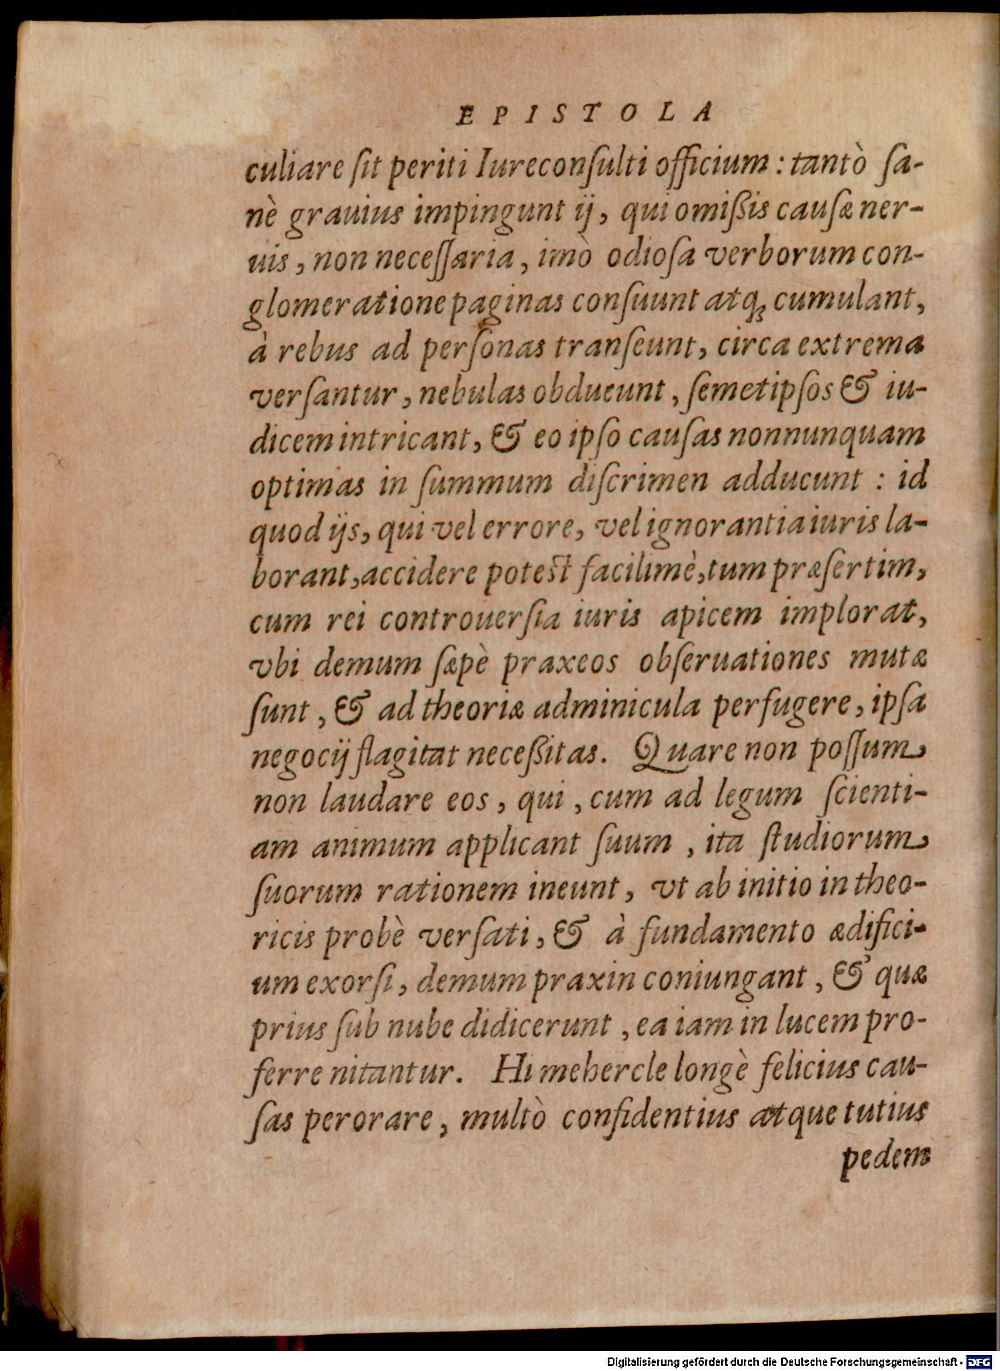 EPISTOLA
culiare ſit periti Iureconſulti officium : tantò ſa-
nè grauius impingunt ij, qui omißis cauſæ ner-
uis, non neceſſaria, imò odioſa verborum con-
glomeratione paginas conſuunt atq; cumulant,
à rebus ad perſonas tranſeunt, circa extrema
verſantur, nebulas obducunt, ſemetipſos & iu-
dicem intricant, & eo ipſo cauſas nonnunquam
optimas in ſummum diſcrimen adducunt : id
quod ijs, qui vel errore, vel ignorantia iuris la-
borant, accidere poteſt facilimè, tum præſertim,
cum rei controuerſia iuris apicem implorat,
vbi demum ſæpè praxeos obſeruationes mutæ
ſunt, & ad theoriæ adminicula perfugere, ipſa
negocij flagitat neceßitas. Quare non poſſum
non laudare eos, qui, cum ad legum ſcienti-
am animum applicant ſuum, ita ſtudiorum
ſuorum rationem ineunt, vt ab initio in theo-
ricis probè verſati, & à fundamento ædifici-
um exorſi, demum praxin coniungant, & quæ
prius ſub nube didicerunt, ea iam in lucem pro-
ferre nitantur. Hi mehercle longè felicius cau-
ſas perorare, multò confidentius atque tutius
pedem
Digitalisierung gefördert durch die Deutsche Forschungsgemeinschaft - DFG